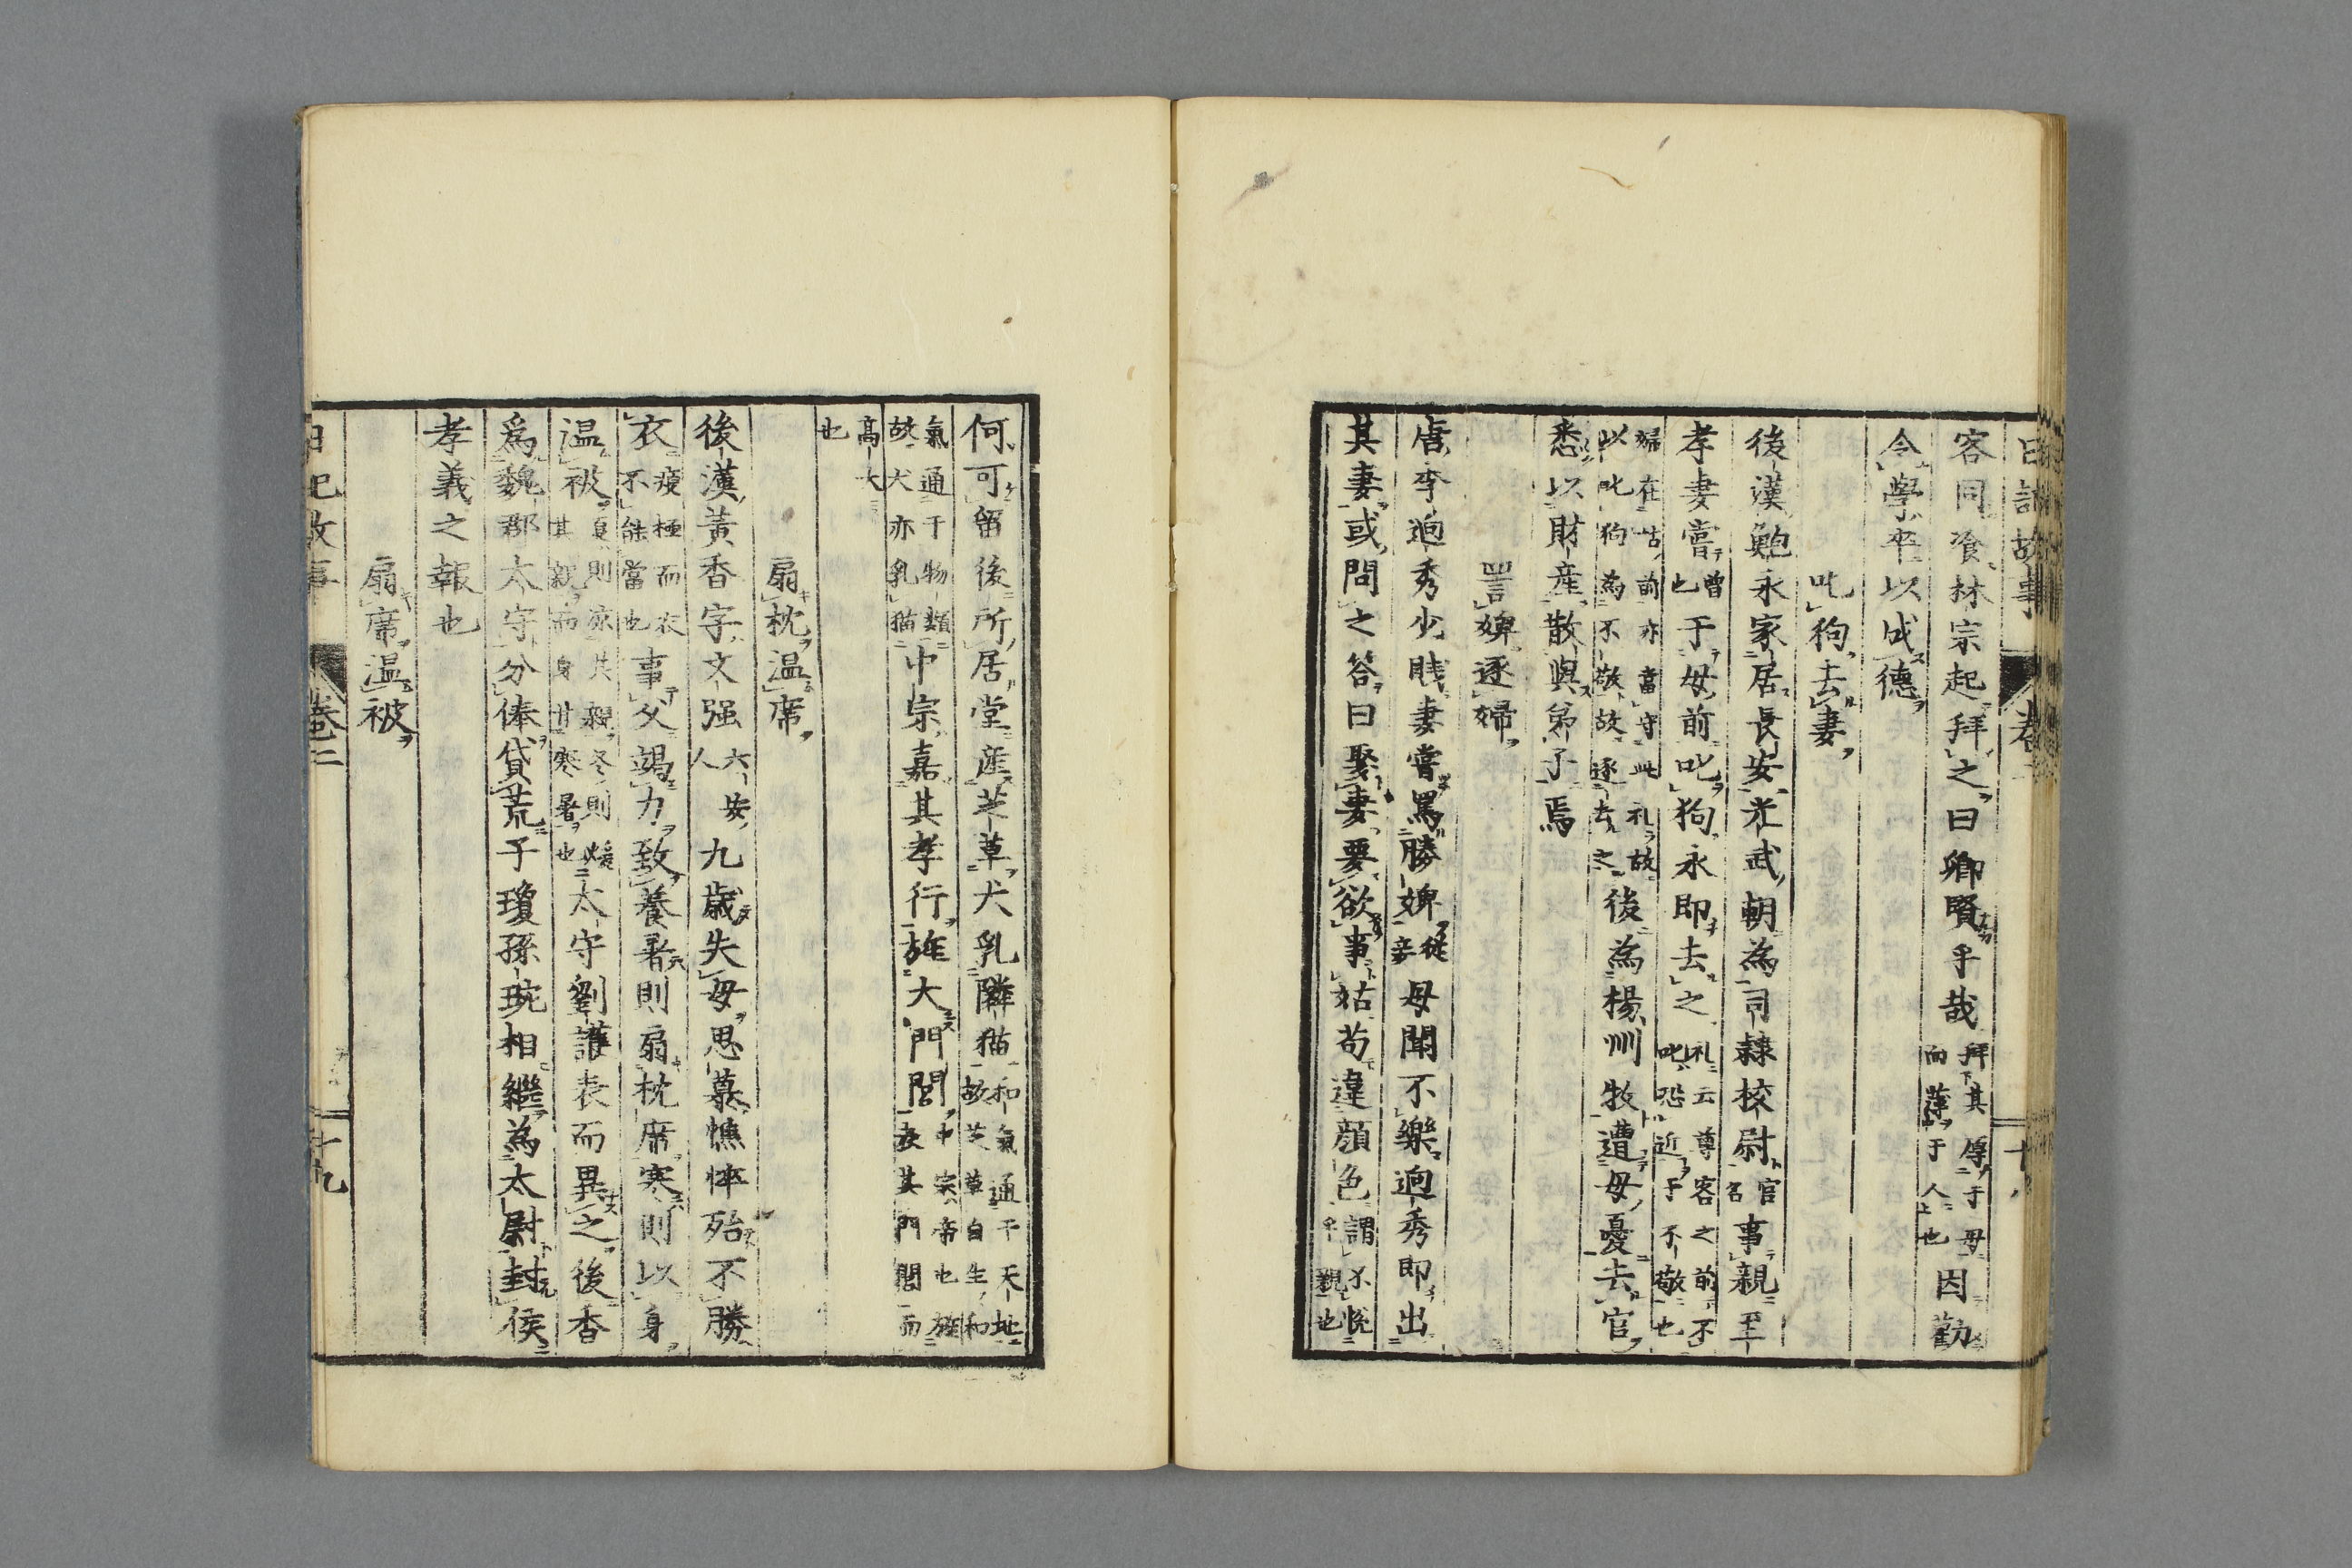 日記故事 卷二 十八
客同飡林宗起拜之曰卿賢乎哉拜其厚于母而薄于人也因勸
令學卒以成德
叱狗去妻
後漢鮑永家居長安光武朝為司隷校尉官名事親至
孝妻嘗曾也于母前叱狗永即去之礼云尊客之前不叱恐近于不敬也
婦在姑前亦當守此礼故以叱狗為不敬故逐去之後為楊州牧遭母憂去官
悉以財産散與弟子焉
詈婢逐婦
唐李逈秀少賤妻嘗罵勝婢從妾母聞不樂逈秀即出
其妻或問之答曰娶妻要欲事姑苟違顔色謂不悦乎親也
何可留後所居堂産芝草犬乳隣猫和氣通于天地故芝草自生和
氣通于物類故犬亦乳猫中宗嘉其孝行旌大門閭中宗帝也旌表其門閭而
高大也
扇枕温席
後漢黃香字文强六安人九歳失母思慕憔悴殆不勝
衣痩極而衣不能當也事父竭力致養暑則扇枕席寒則以身
温被身則凉其親冬則煖其親而身甘寒暑也太守劉護表而異之後香
爲魏郡太守分俸貸荒子瓊孫琬相繼為太尉封侯
孝義之報也
扇席温被
日記故事 卷二 十九